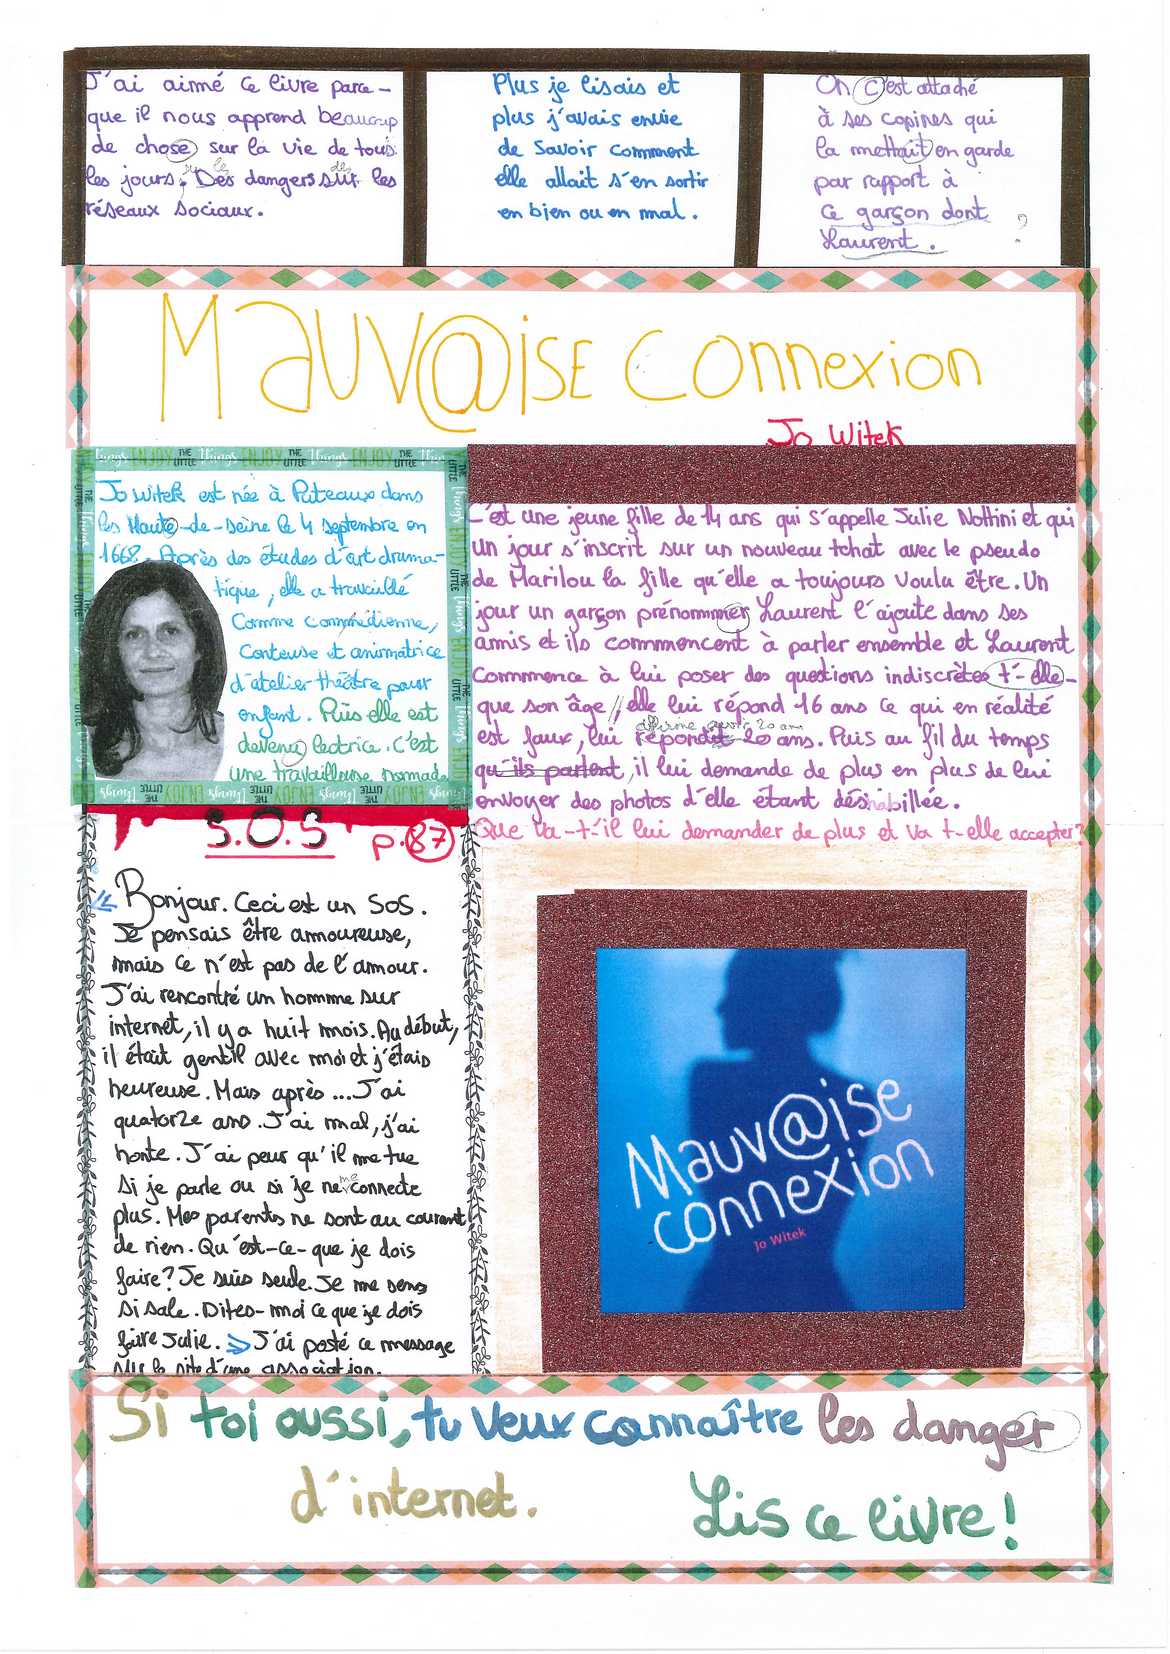 J'ai aimé ce livre parce-
que il nous apprend beaucoup
de chose sur la vie de tous
les jours, Des dangers sur les
réseaux sociaux.
Plus je lisais et
plus j'avais envie
de savoir comment
elle allait s'en sortir
en bien ou en mal.
On c'est attaché
à ses copines qui
la mettait en garde
par rapport à
ce garçon dont
Laurent.
?
Mauv@ise connexion
Jo Witek
Jo Witek est née à Puteaux dans
les Haute-de-seine le 4 septembre en
1668. Après des études d'art drama-
tique, elle a travaillé
Comme commédienne,
Conteuse et animatrice
d'atelier théâtre pour
enfant. Puis elle est
devenu lectrice. C'est
une travailleuse nomade
C'est une jeune fille de 14 ans qui s'appelle Julie Nottini et qui
un jour s'inscrit sur un nouveau tchat avec le pseudo
de Marilou la fille qu'elle a toujours voulu être. Un
jour un garçon prénommer Laurent l'ajoute dans ses
amis et ils commencent à parler ensemble et Laurent
Commence à lui poser des questions indiscrètes t-elle-
que son âge, elle lui répond 16 ans ce qui en réalité
affirme avoir 20 ans
est faux, lui répondit 20 ans. Puis au fil du temps
qu'ils parlent, il lui demande de plus en plus de lui
envoyer des photos d'elle étant déshabillée.
Que va-t-il lui demander de plus et va t-elle accepter?
S.O.S p.87
« Bonjour. Ceci est un SOS.
Je pensais être amoureuse,
mais ce n'est pas de l'amour.
J'ai rencontré un homme sur
internet, il y a huit mois. Au début,
il était gentil avec moi et j'étais
heureuse. Mais après ... J'ai
quatorze ans. J'ai mal, j'ai
honte. J'ai peur qu'il me tue
si je parle ou si je ne me connecte
plus. Mes parents ne sont au courant
de rien. Qu'est-ce-que je dois
faire? Je suis seule. Je me sens
si sale. Dites-moi ce que je dois
faire Julie. » J'ai posté ce message
sur le site d'une association.
Mauv@ise
connexion
Jo Witek
Si toi aussi, tu veux connaître les danger
d'internet. Lis ce livre!